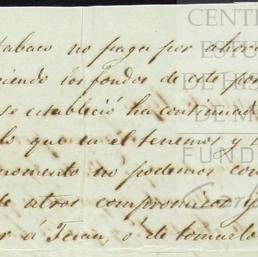 tabaco no pagan por ahora
siendo los fondos de este por
se estableció ha continuado
lo que en el tenemos y
momento no podemos con
de otros compromisos y
or á Teran, ó de tomarlo
CENT
ESTU
DE HIS
FUND